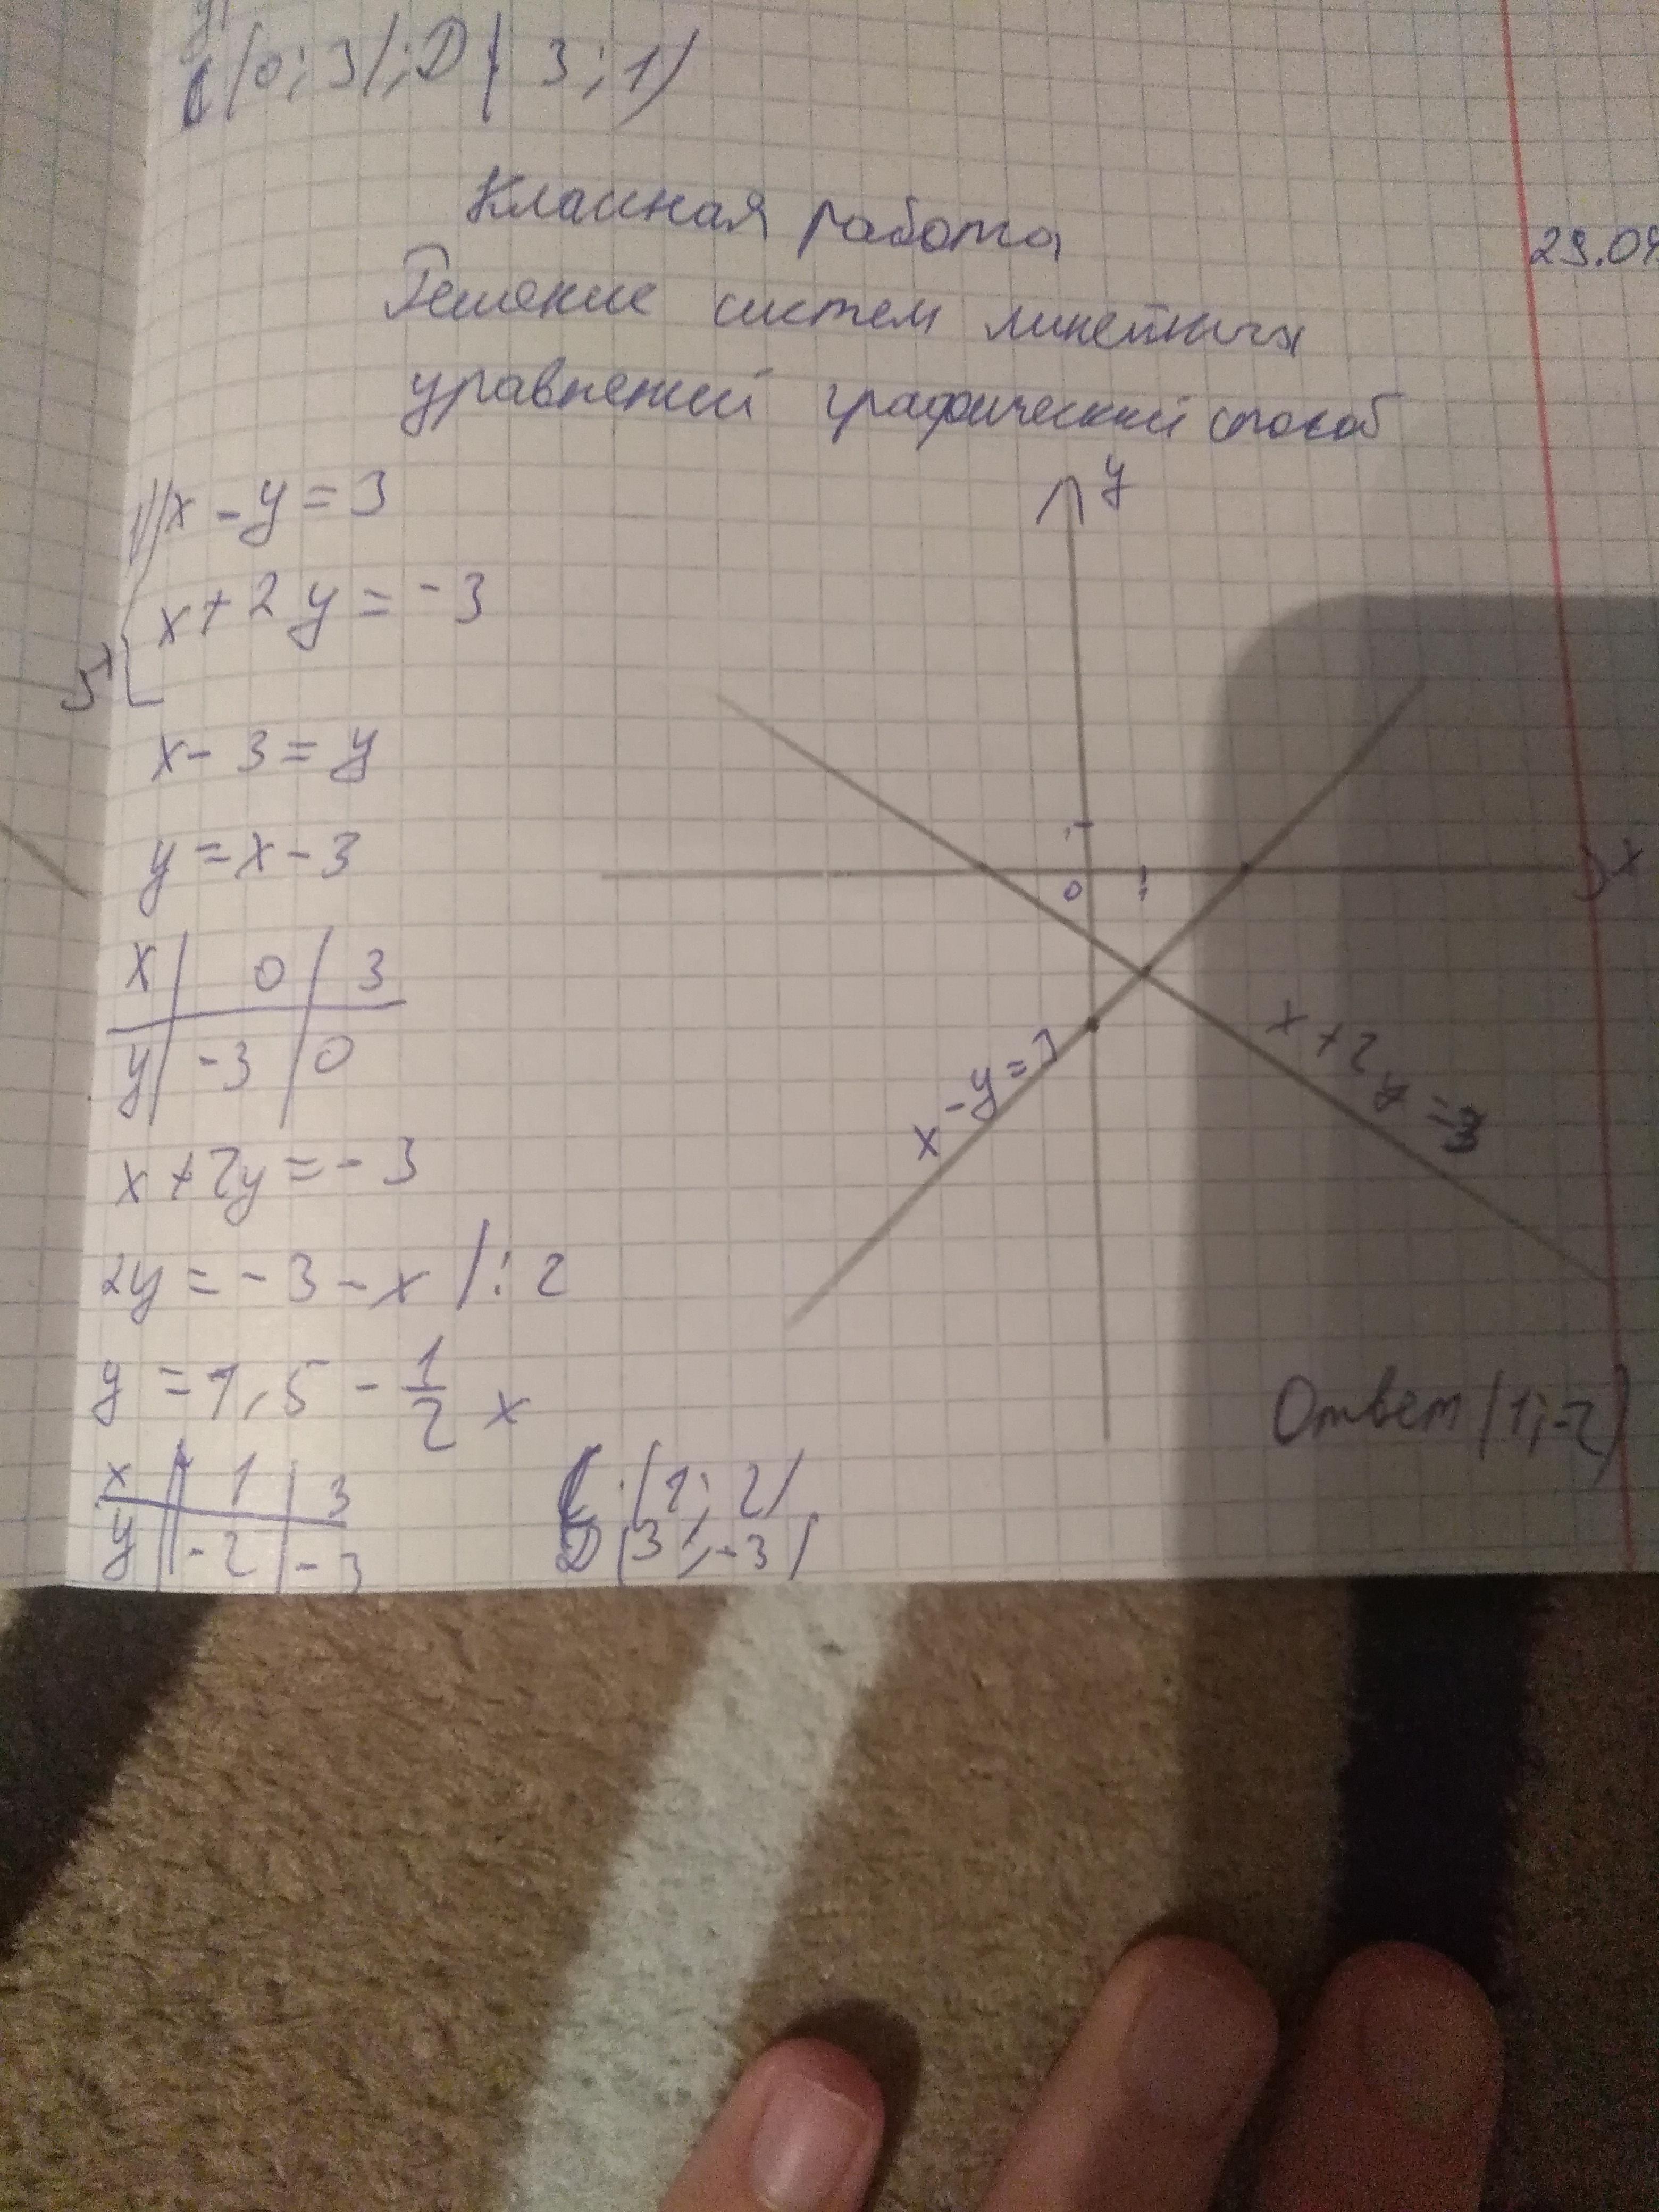 C (0; 3); D ( 3; 1)
Классная работа
29.09
Решение систем линейных
уравнений графический способ
1) x - y = 3
x + 2y = -3
x - 3 = y
y = x - 3
x | 0 | 3
y | -3 | 0
x + 2y = -3
2y = -3 - x /: 2
y = 1,5 - 1/2 x
x | 1 | 3
y | -2 | -3
C (1; 2)
D (3; -3)
y
1
0 1
x
x - y = 3
x + 2y = -3
Ответ (1; -2)